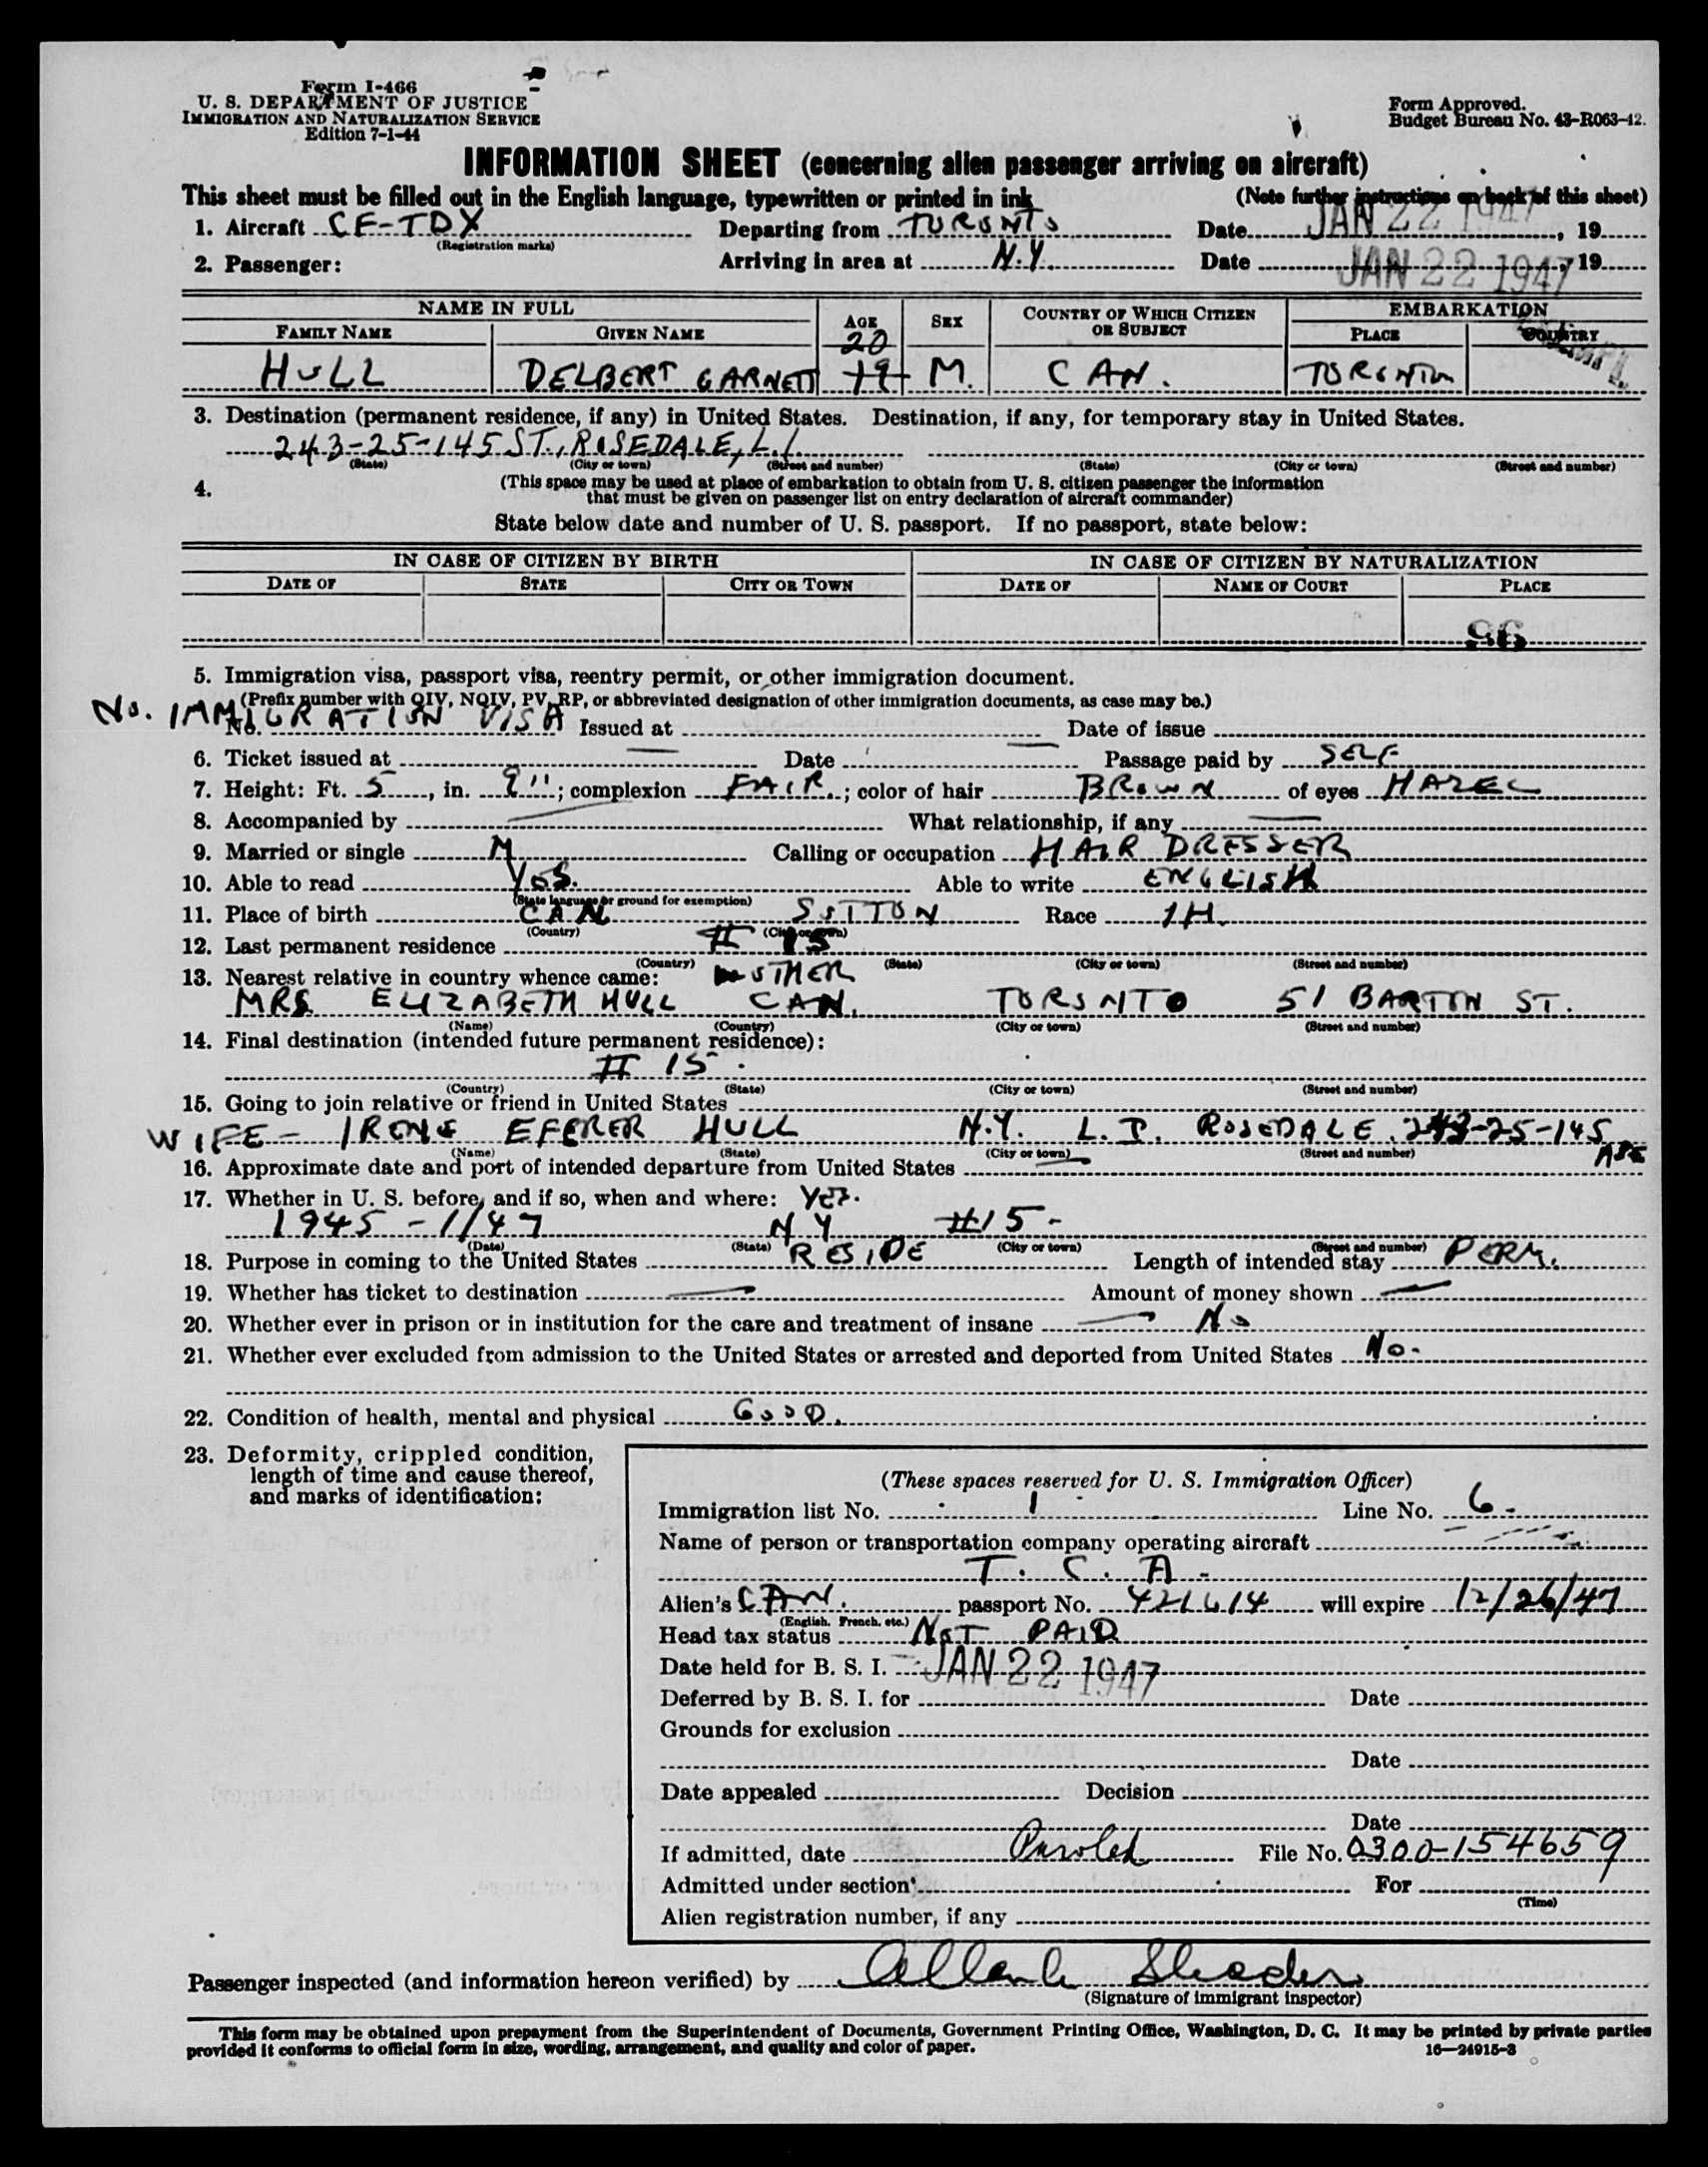 Form I-466
U. S. DEPARTMENT OF JUSTICE
IMMIGRATION AND NATURALIZATION SERVICE
Edition 7-1-44
Form Approved.
Budget Bureau No. 43-R063-42.
INFORMATION SHEET (concerning alien passenger arriving on aircraft)
This sheet must be filled out in the English language, typewritten or printed in ink (Note further instructions on back of this sheet)
1. Aircraft CF-TDX Departing from TORONTO Date JAN 22 1947, 19
(Registration marks)
2. Passenger: Arriving in area at N.Y. Date JAN 22 1947, 19
NAME IN FULL AGE SEX COUNTRY OF WHICH CITIZEN OR SUBJECT EMBARKATION
FAMILY NAME GIVEN NAME 20 PLACE COUNTRY
HULL DELBERT GARNETT 19 M. CAN. TORONTO
3. Destination (permanent residence, if any) in United States. Destination, if any, for temporary stay in United States.
243-25-145 ST., ROSEDALE, L.I.
(State) (City or town) (Street and number) (State) (City or town) (Street and number)
4. (This space may be used at place of embarkation to obtain from U. S. citizen passenger the information
that must be given on passenger list on entry declaration of aircraft commander)
State below date and number of U. S. passport. If no passport, state below:
IN CASE OF CITIZEN BY BIRTH IN CASE OF CITIZEN BY NATURALIZATION
DATE OF STATE CITY OR TOWN DATE OF NAME OF COURT PLACE
5. Immigration visa, passport visa, reentry permit, or other immigration document.
(Prefix number with QIV, NQIV, PV, RP, or abbreviated designation of other immigration documents, as case may be.)
No. IMMIGRATION VISA
No. Issued at Date of issue
6. Ticket issued at — Date — Passage paid by SELF
7. Height: Ft. 5, in. 9"; complexion FAIR.; color of hair BROWN of eyes HAZEL
8. Accompanied by — What relationship, if any —
9. Married or single M Calling or occupation HAIR DRESSER
10. Able to read YES. Able to write ENGLISH
(State language or ground for exemption)
11. Place of birth CAN SUTTON Race
(Country) (City or town)
12. Last permanent residence # 15
(Country) (State) (City or town) (Street and number)
13. Nearest relative in country whence came: MOTHER
MRS ELIZABETH HULL CAN. TORONTO 51 BARTON ST.
(Name) (Country) (City or town) (Street and number)
14. Final destination (intended future permanent residence):
# 15.
(Country) (State) (City or town) (Street and number)
15. Going to join relative or friend in United States
WIFE - IRENE HULL N.Y. L.I. ROSEDALE. 243-25-145
(Name) (State) (City or town) (Street and number)
AVE
16. Approximate date and port of intended departure from United States —
17. Whether in U. S. before, and if so, when and where: YES.
1945 - 1/47 NY #15-
(Date) (State) (City or town) (Street and number)
18. Purpose in coming to the United States RESIDE Length of intended stay PERM.
19. Whether has ticket to destination — Amount of money shown —
20. Whether ever in prison or in institution for the care and treatment of insane — No
21. Whether ever excluded from admission to the United States or arrested and deported from United States No.
22. Condition of health, mental and physical GOOD.
23. Deformity, crippled condition,
length of time and cause thereof,
and marks of identification:
(These spaces reserved for U. S. Immigration Officer)
Immigration list No. 1 Line No. 6-
Name of person or transportation company operating aircraft
T. C. A.
Alien's CAN. passport No. 421614 will expire 12/26/47
(English, French, etc.)
Head tax status NOT PAID
Date held for B. S. I. JAN 22 1947
Deferred by B. S. I. for Date
Grounds for exclusion
Date
Date appealed Decision
Date
If admitted, date Paroled File No. 0300-154659
Admitted under section For
(Time)
Alien registration number, if any
Passenger inspected (and information hereon verified) by
(Signature of immigrant inspector)
This form may be obtained upon prepayment from the Superintendent of Documents, Government Printing Office, Washington, D. C. It may be printed by private parties
provided it conforms to official form in size, wording, arrangement, and quality and color of paper. 16—24915-3